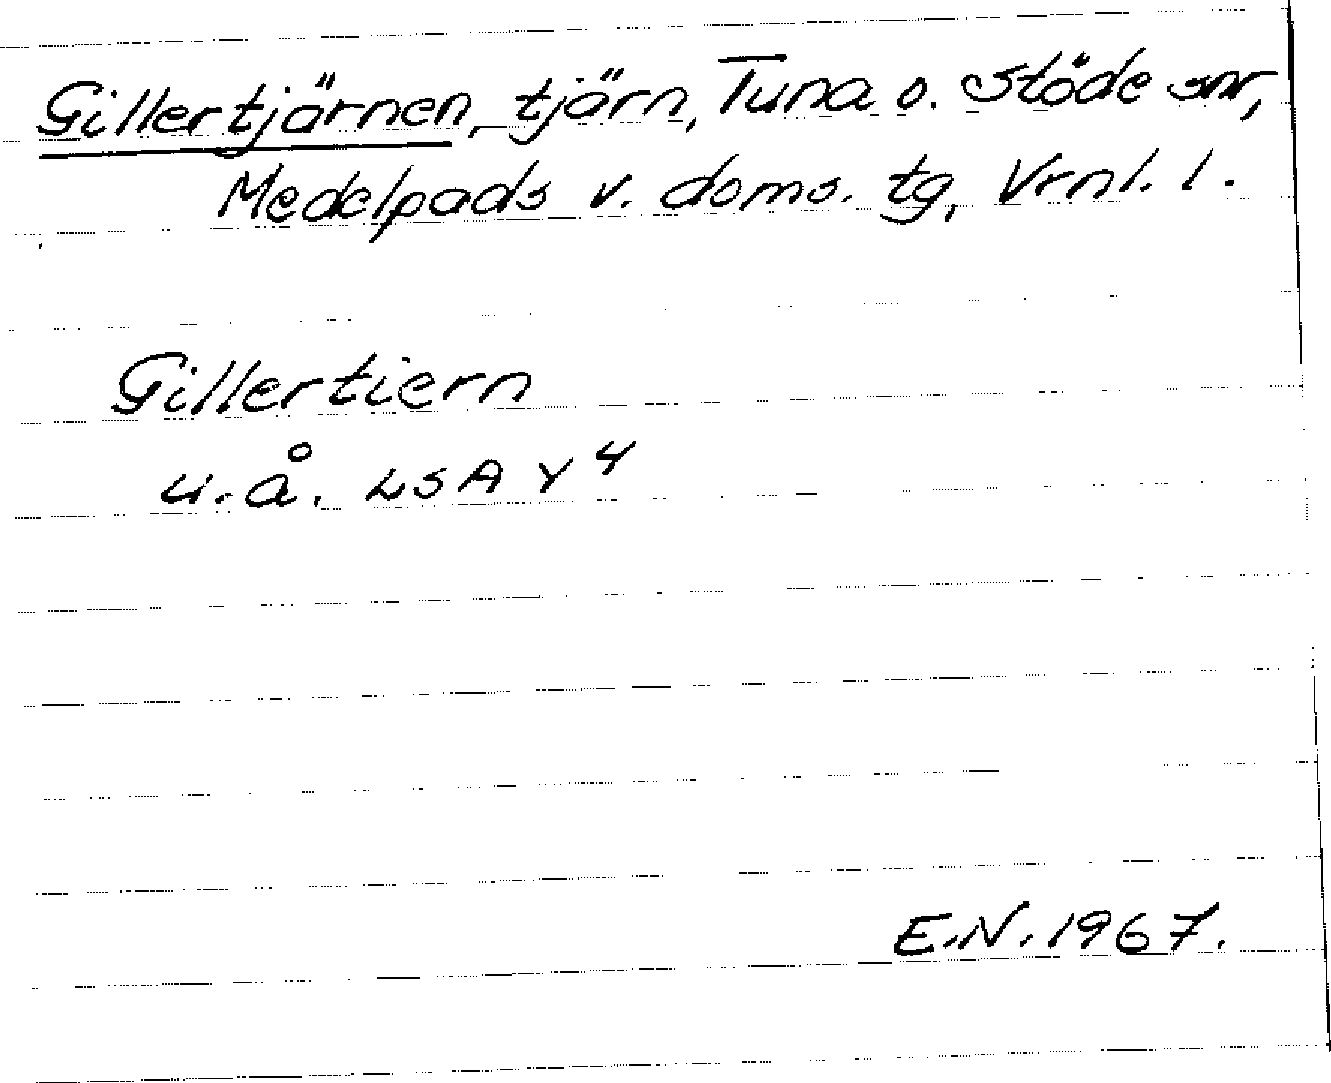 Gillertjärnen, tjärn, Tuna o. Stöde snr,
Medelpads v. doms. tg, Vrnl. l.
Gillertiern
u.å. LSA Y 4
E.N. 1967.